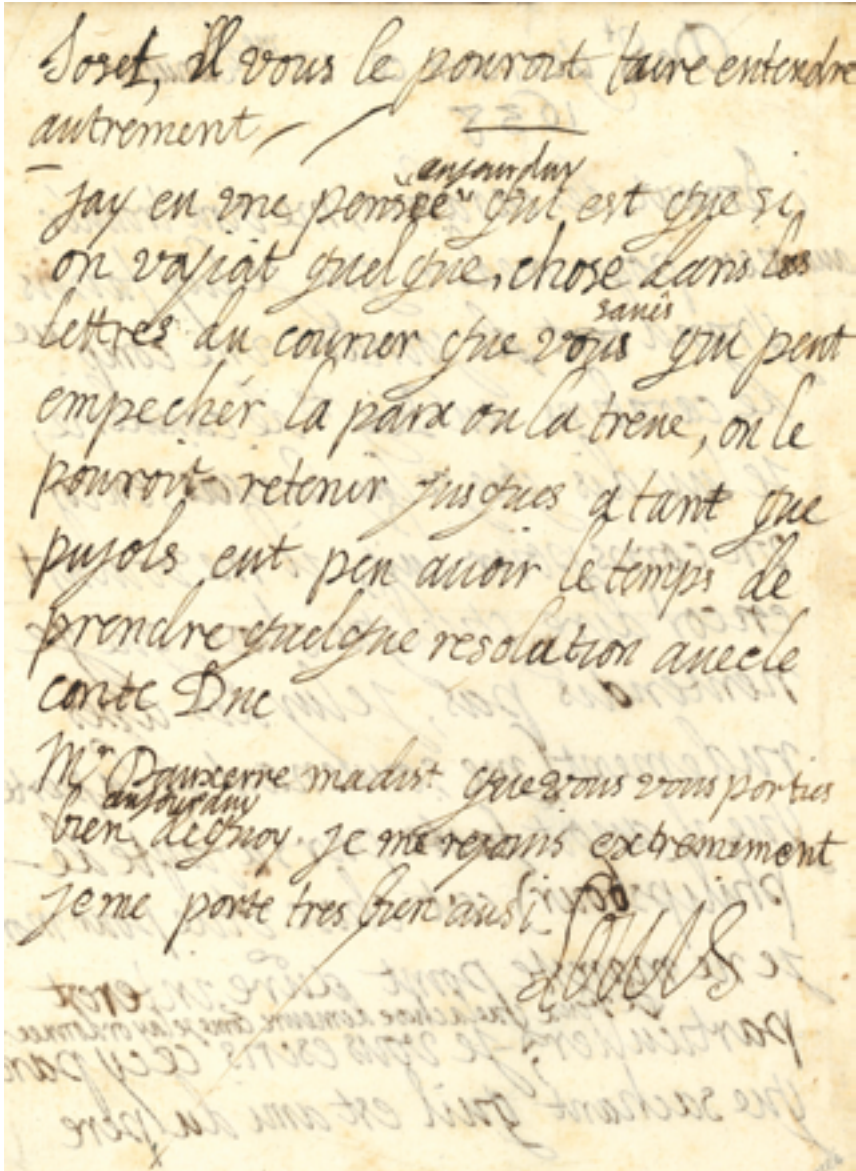 Josef, ill vous le pouroit faire entendre
autrement
aujourduy
jay eu vne pensée qui est que si
on vojoit quelque chose dans les
saués
lettres du courier que vous qui peut
empechér la paix ou la treue, on le
pouroit retenir jusques a tant que
pujols eut peu auoir le temps de
prendre quelque resolution auec le
conte Duc
Mr Dauxerre madist que vous vous porties
aujourduy
bien dequoy je me rejouis extremement
je me porte tres bien ausi
Louis